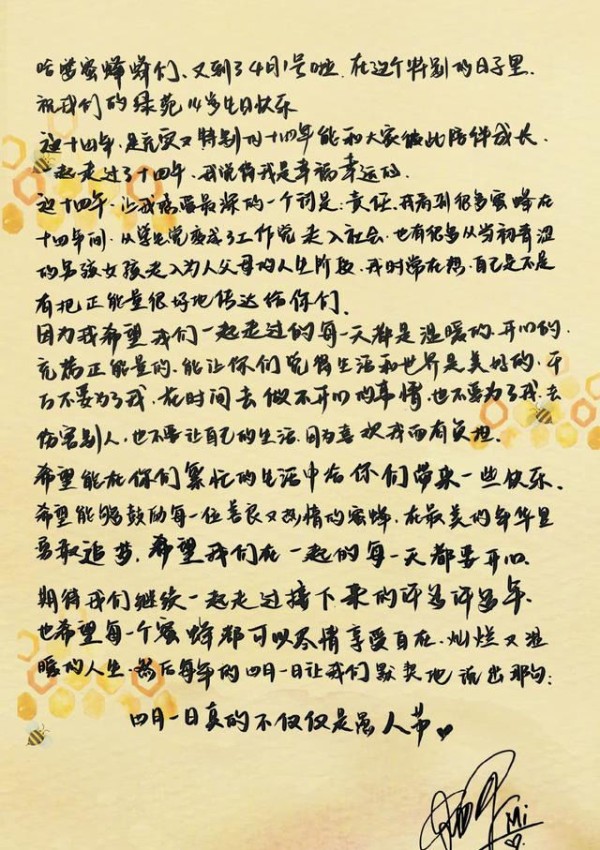 哈啰蜜蜂蜂们、又到了4月1号啦.在这个特别的日子里.
祝我们的绿苑14岁生日快乐
这十四年.是充实又特别的十四年能和大家彼此陪伴成长.
一起走过了十四年.我觉得我是幸福幸运的.
这十四年.让我感受最深的一个词是:责任.我看到很多蜜蜂在
十四年间.从学生党变成了工作党走入社会.也有很多从当初青涩
的男孩女孩走入为人父母的人生阶段.我时常在想.自己是不是
有把正能量很好地传达给你们.
因为我希望我们一起走过的每一天都是温暖的.开心的.
充满正能量的.能让你们觉得生活和世界是美好的.千
万不要为了我.花时间去做不开心的事情.也不要为了我.去
伤害别人.也不要让自己的生活.因为喜欢我而有负担.
希望能在你们繁忙的生活中给你们带来一些快乐.
希望能够鼓励每一位善良又热情的蜜蜂.在最美的年华里
勇敢追梦.希望我们在一起的每一天都要开心.
期待我们继续一起走过接下来的许多许多年.
也希望每一个蜜蜂都可以尽情享受自在.灿烂又温
暖的人生.然后每年的四月一日让我们默契地说出那句:
四月一日真的不仅仅是愚人节♥
Mi